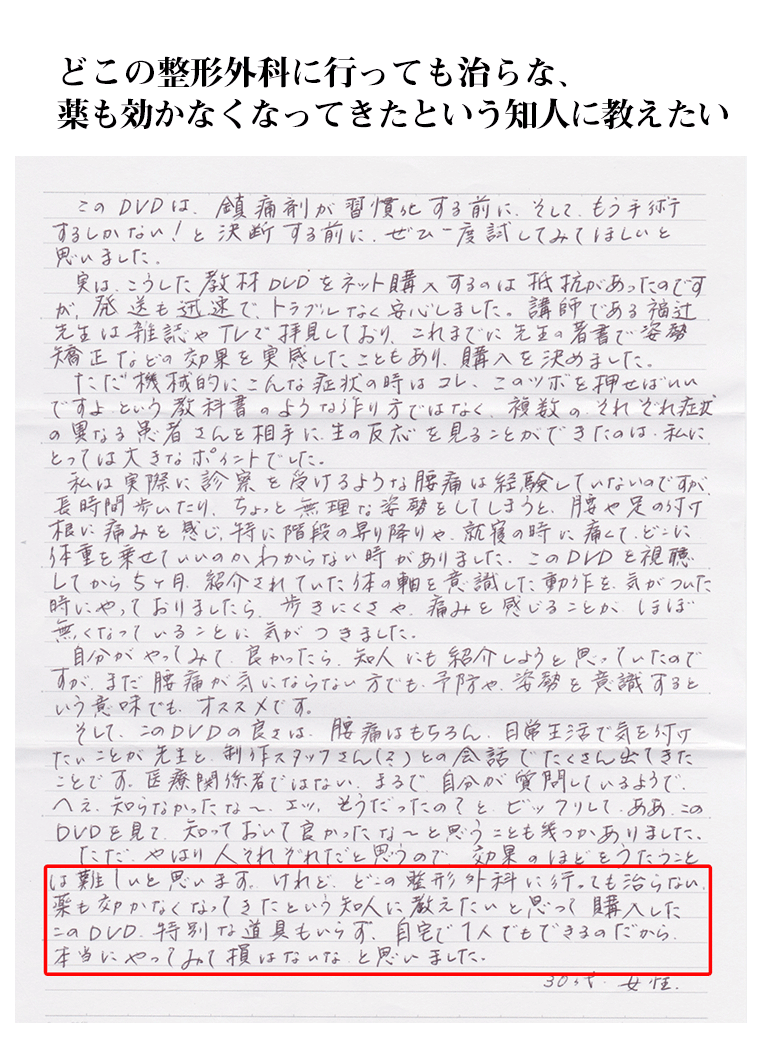 どこの整形外科に行っても治らな、
薬も効かなくなってきたという知人に教えたい
このDVDは、鎮痛剤が習慣化する前に、そして、もう手術
するしかない!と決断する前に、ぜひ一度試してみてほしいと
思いました。
実は、こうした教材DVDをネット購入するのは抵抗があったのです
が、発送も迅速で、トラブルなく安心しました。講師である福辻
先生は雑誌やTVで拝見しており、これまでに先生の著書で姿勢
矯正などの効果を実感したこともあり、購入を決めました。
ただ機械的にこんな症状の時はコレ、このツボを押せばいい
ですよ、という教科書のような作り方ではなく、複数の、それぞれ症状
の異なる患者さんを相手に、生の反応を見ることができたのは、私に
とっては大きなポイントでした。
私は実際に診察を受けるような腰痛は経験していないのですが、
長時間歩いたり、ちょっと無理な姿勢をしてしまうと、腰や足の付け
根に痛みを感じ、特に階段の昇り降りや、就寝の時に痛くて、どこに
体重を乗せていいのかわからない時がありました。このDVDを視聴
してから5ヶ月、紹介されていた体の軸を意識した動作を、気がついた
時にやっておりましたら、歩きにくさや、痛みを感じることが、ほぼ
無くなっていることに気がつきました。
自分がやってみて、良かったら、知人にも紹介しようと思っていたので
すが、まだ腰痛が気にならない方でも、予防や、姿勢を意識すると
いう意味でも、オススメです。
そして、このDVDの良さは、腰痛はもちろん、日常生活で気を付け
たいことが先生と、制作スタッフさん(?)との会話でたくさん出てきた
ことです。医療関係者ではない、まるで、自分が質問しているようで、
へえ、知らなかったな〜、エッ、そうだったの?と、ビックリして、ああ、この
DVDを見て、知っておいて良かったな〜と思うことも幾つかありました。
ただ、やはり人それぞれだと思うので、効果のほどをうたうこと
は難しいと思います。けれど、どこの整形外科に行っても治らない、
薬も効かなくなってきたという知人に教えたいと思って購入した
このDVD、特別な道具もいらず、自宅で1人でもできるのだから、
本当にやってみて損はないな、と思いました。
30代 女性.